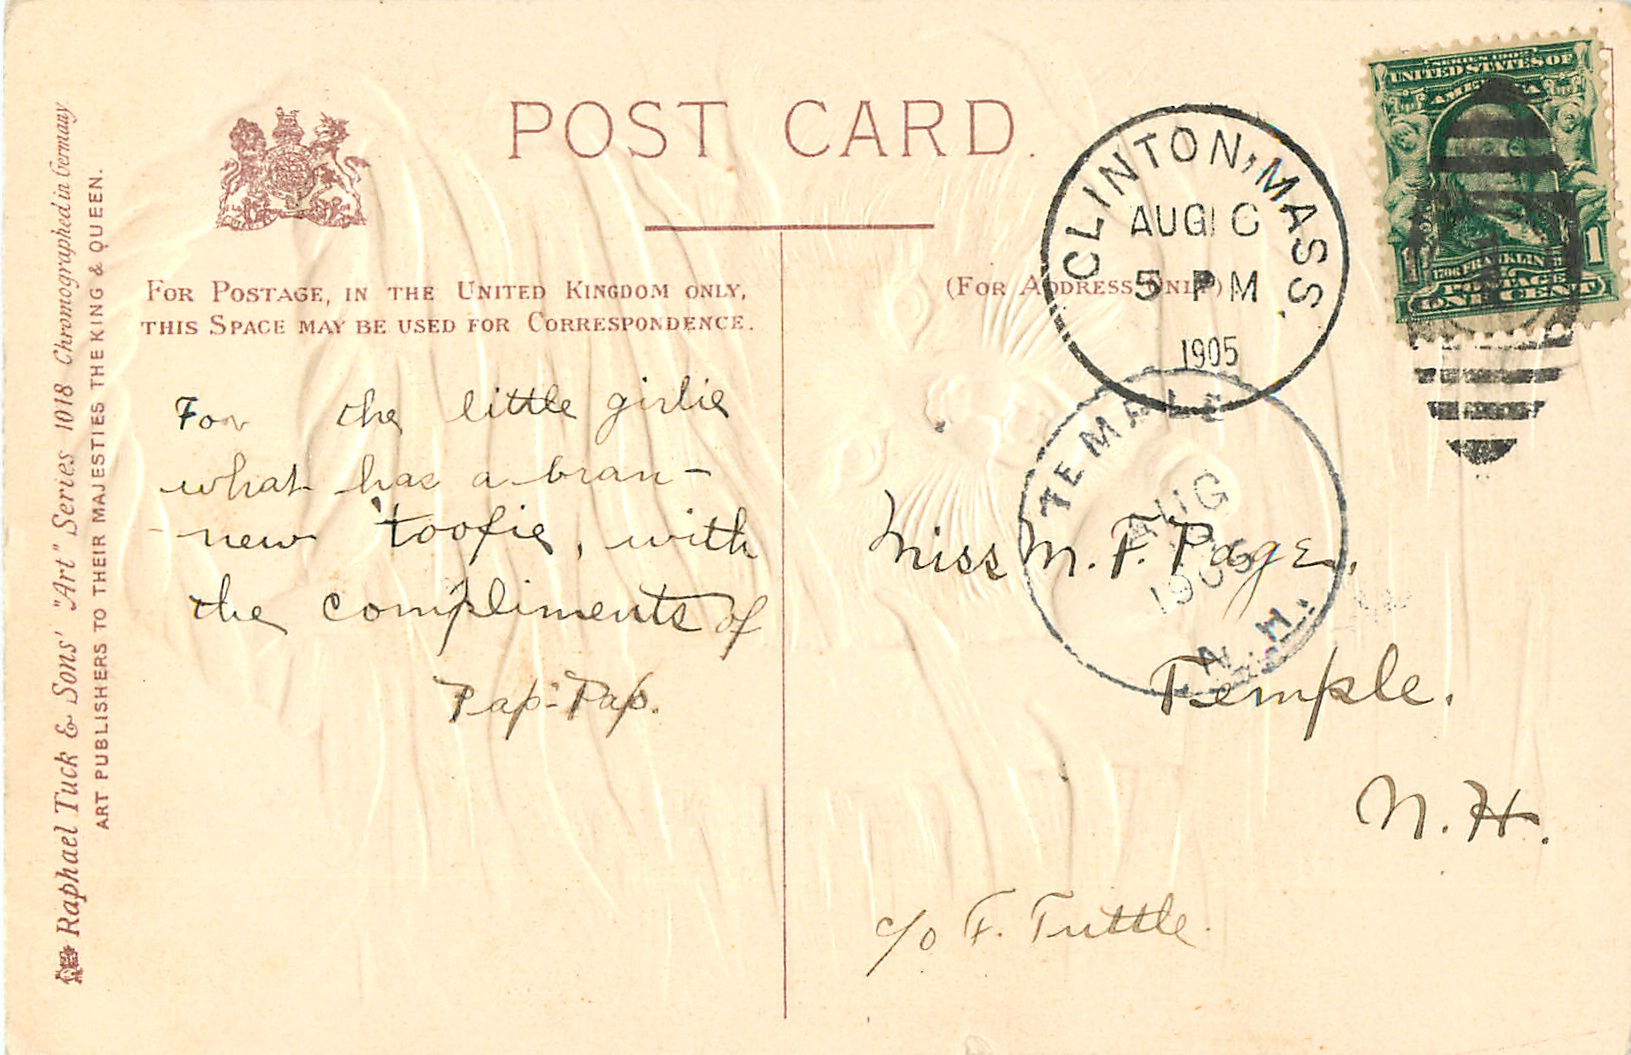 POST CARD.
FOR POSTAGE, IN THE UNITED KINGDOM ONLY,
THIS SPACE MAY BE USED FOR CORRESPONDENCE.
(FOR ADDRESS ONLY)
For the little girlie
what has a bran-
-new 'toofie, with
the compliments of
Pap-Pap.
Miss M. F. Page.
Temple.
N. H.
c/o F. Tuttle.
CLINTON, MASS.
AUG 10
5 PM
1905
TEMPLE
AUG
1905
N.H.
SERIES 1902
UNITED STATES OF
AMERICA
1706 FRANKLIN
POSTAGE
1 1
ONE CENT
Raphael Tuck & Sons' "Art" Series 1018 Chromographed in Germany
ART PUBLISHERS TO THEIR MAJESTIES THE KING & QUEEN.